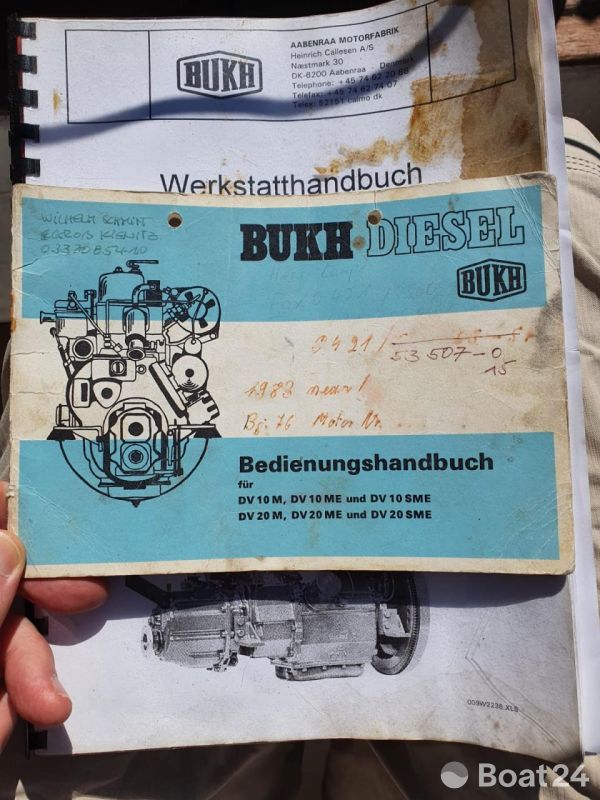 BUKH
AABENRAA MOTORFABRIK
Heinrich Callesen A/S
Næstmark 30
DK-6200 Aabenraa - Denmark
Telephone: +45 74 62 20 88
Telefax: +45 74 62 74 07
Telex: 52151 calmo dk
Werkstatthandbuch
WILHELM SCHMIDT
03370854-10
BUKH DIESEL
BUKH
0421/
53507-0
15
1983 neu!
Bj. 76 Motor Nr.
Bedienungshandbuch
für
DV 10 M, DV 10 ME und DV 10 SME
DV 20 M, DV 20 ME und DV 20 SME
009W2238.XLS
Boat24